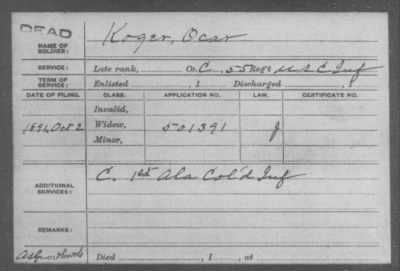 DEAD
NAME OF SOLDIER: Koger, Ocar
SERVICE: Late rank, Co. C, 55 Reg't U S C Inf
TERM OF SERVICE: Enlisted , 1 Discharged , 1
DATE OF FILING. CLASS. APPLICATION NO. LAW. CERTIFICATE NO.
Invalid,
1891, Oct 2 Widow, 531391 J
Minor,
ADDITIONAL SERVICES: C. 1st Ala Col'd Inf
REMARKS:
Died , 1 , at